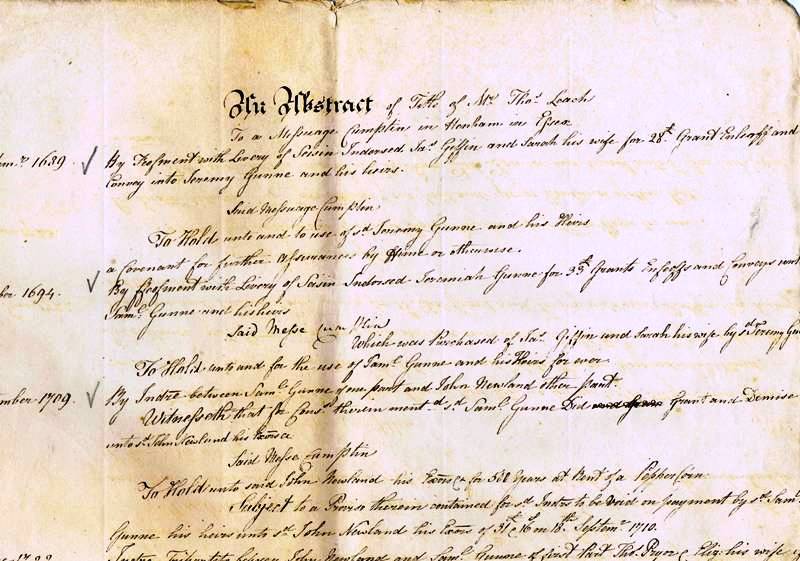 An Abstract of Title of Mr. Thos. Leach
To a Messuage Cumptin in Henham in Essex
1689. By Feofment with Livery of Seisin Indorsed Jas. Giffin and Sarah his wife for 28£ Grant Enfeoff and
Convey into Jeremy Gunne and his heirs.
Said Messuage Cumptin
To Hold unto and to use of sd. Jeremy Gunne and his Heirs
a Covenant for further Assurances by Fine or otherwise.
ber 1694. By Feofment with Livery of Seisin Indorsed Jeremiah Gunne for 35£ Grants Enfeoffs and Conveys unto
Saml. Gunne and his heirs
Said Messe Cumptin
Which was Purchased of Jas. Giffin and Sarah his wife by sd. Jeremy Gun
To Hold unto and for the use of Saml. Gunne and his Heirs for ever
mber 1709. By Indre between Saml. Gunne of one part and John Newland other part.
Witnesseth that for Cons. therein mentd. sd. Saml. Gunne Did Grant and Demise
unto sd. John Newland his Exors &c
Said Messe Cumptin
To Hold unto said John Newland his Exors &c for 500 Years at Rent of a Pepper Corn
Subject to a Proviso therein contained for sd. Indre to be Void on payment by sd. Saml.
Gunne his heirs unto sd. John Newland his Exors of on 18th. Septemr. 1710.
Indre Tripartite between John Newland and Saml. Gunne of first Part Thos. Pryor & Eliz: his wife